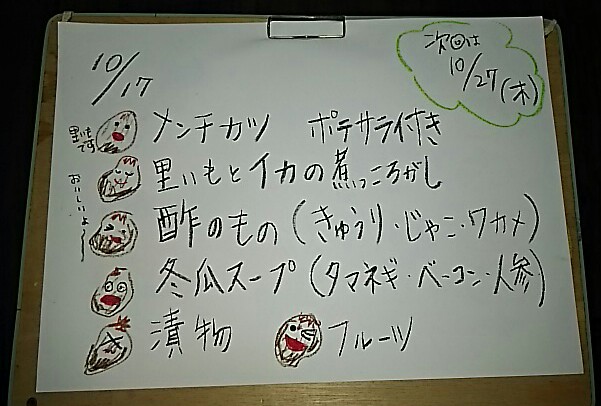 10/17
次回は
10/27(木)
里いも
です
おいしいよ〜
メンチカツ ポテサラ付き
里いもとイカの煮っころがし
酢のもの(きゅうり・じゃこ・ワカメ)
冬瓜スープ(タマネギ・ベーコン・人参)
漬物 フルーツ